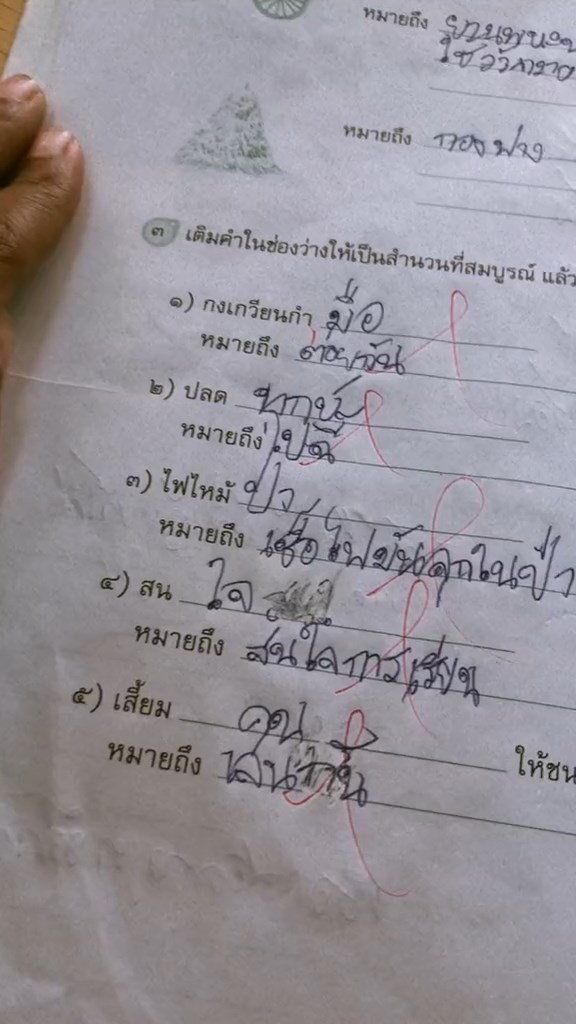 หมายถึง ยานพาหนะ
ใช้
หมายถึง กองฟาง
๓ เติมคำในช่องว่างให้เป็นสำนวนที่สมบูรณ์ แล้ว
๑) กงเกวียนกำ มือ
หมายถึง ต่อยกัน
๒) ปลด ทุกข์
หมายถึง ไปฉี่
๓) ไฟไหม้ ป่า
หมายถึง เชื้อไฟมันลุกในป่า
๔) สน ใจ
หมายถึง สนใจการเรียน
๕) เสี้ยม คน ให้ชน
หมายถึง